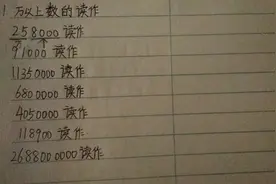 1. 万以上数的读作
258000 读作
91000 读作
11350000 读作
6800000 读作
4050000 读作
118900 读作
268800000 读作